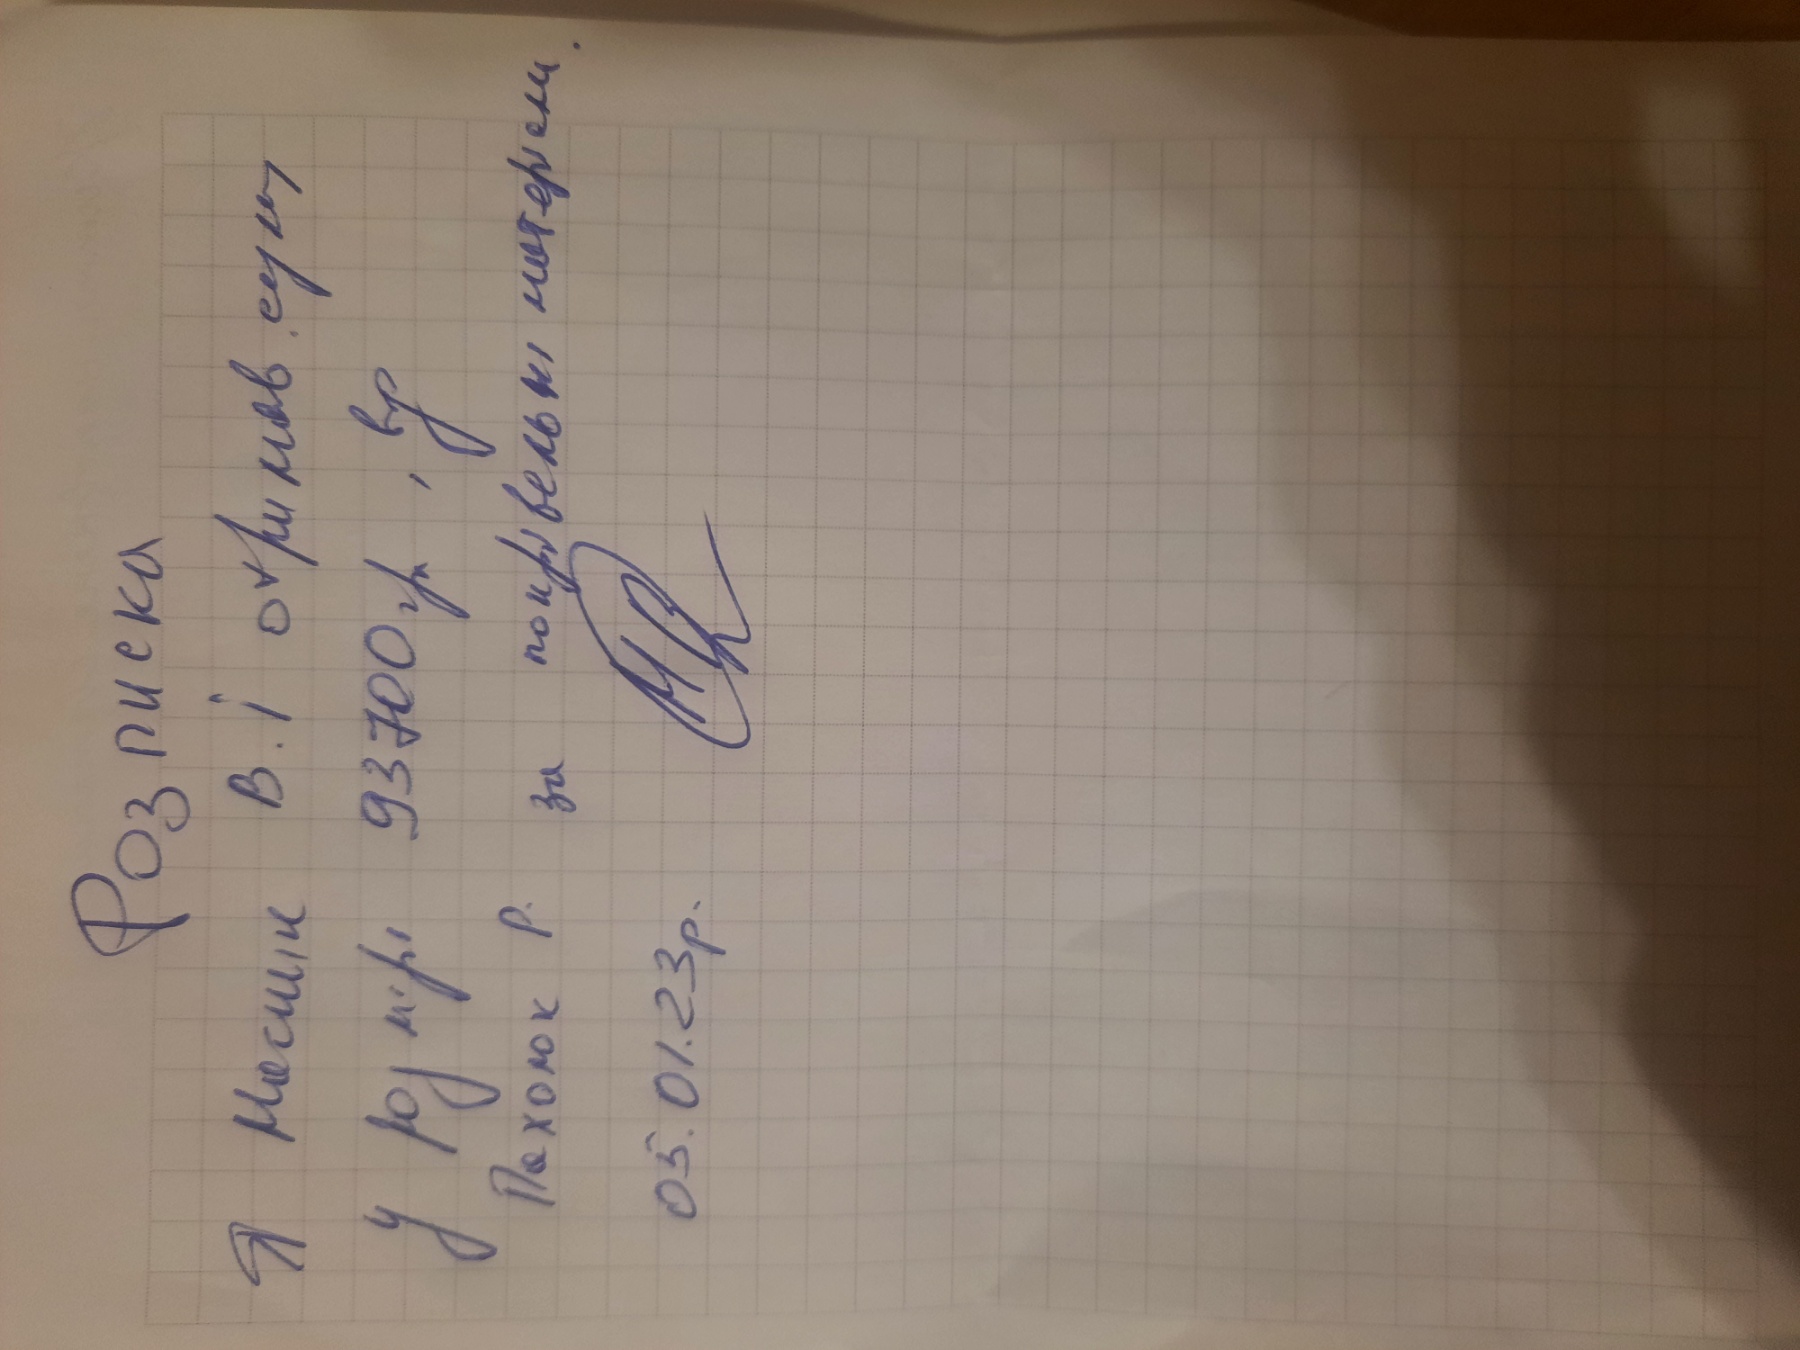 Розписка
Я В.І отримав суму
у розмірі 93700грн, від
Пахолюк Р. за покрівельні матеріали.
05.01.23р.